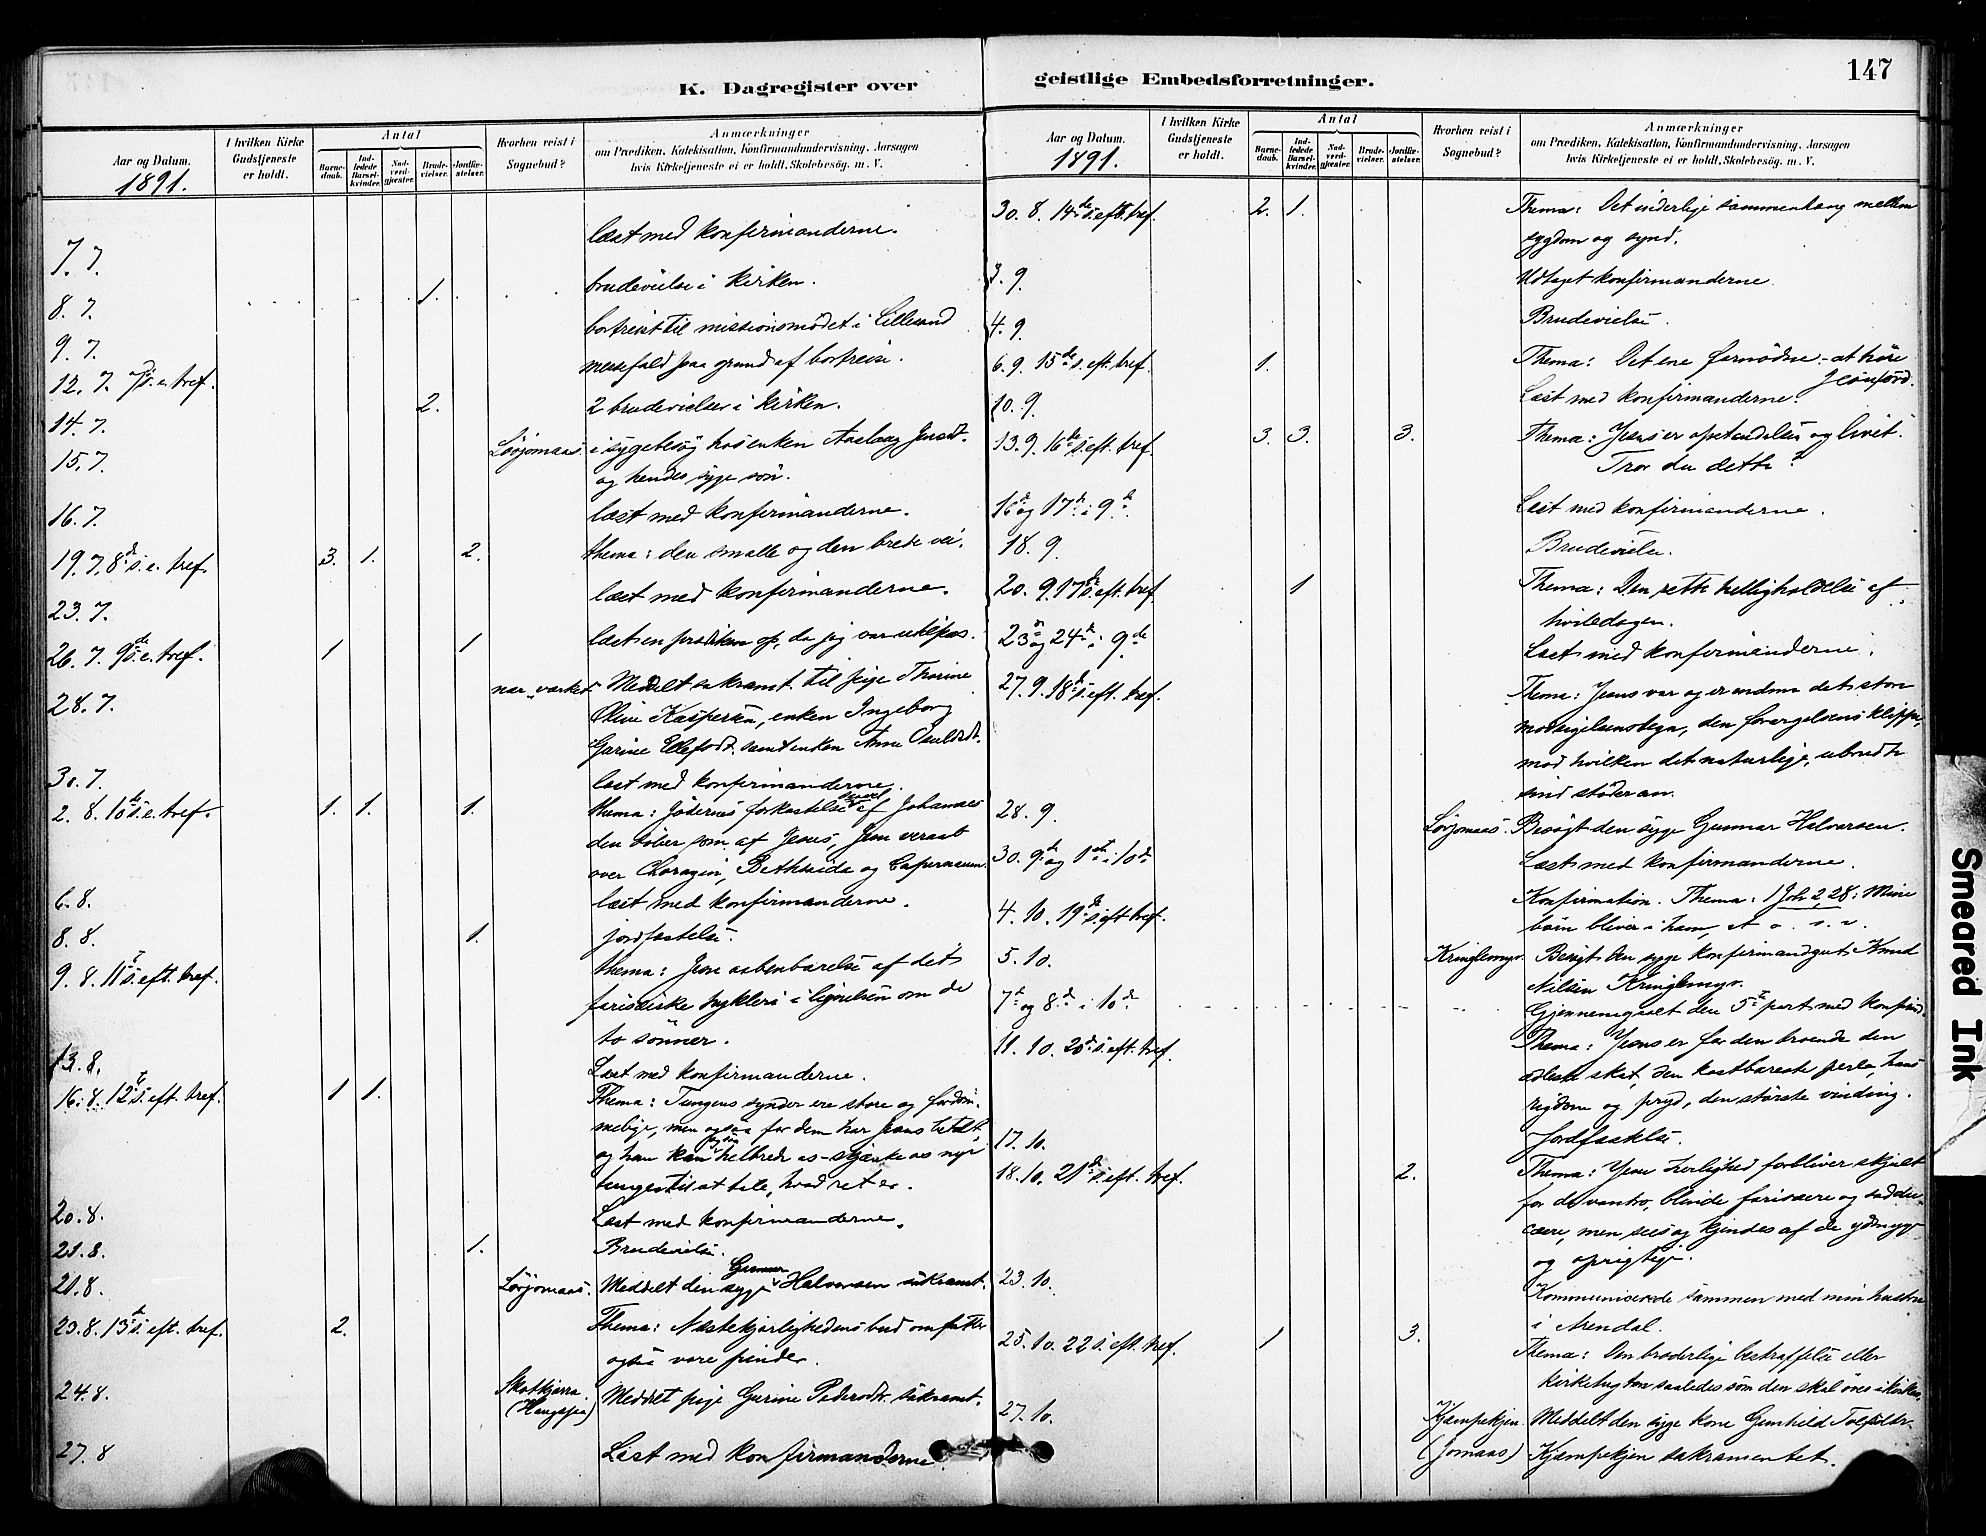 K. Dagregister over
Aar og Datum.
1891.
I hvilken Kirke Gudstjeneste er holdt.
Antal
Barnedaab.
Indledede Barselkvinder.
Nadverdgjester.
Brudevielser.
Jordfæstelser.
Hvorhen reist i Sognebud?
Anmærkninger
om Prædiken, Katekisation, Konfirmandundervisning, Aarsagen
hvis Kirketjeneste ei er holdt, Skolebesög m. V.
7.7. læst med konfirmanderne.
8.7. 1. brudevielse i kirken.
9.7. bortreist til missionsmödet i Lillesand
12.7. 7de s.e. tref. messefald paa grund af bortreise.
14.7. 2. 2 brudevielser i kirken.
15.7. Lövjomaas i sygebesög hos enken Aaslaug
og hendes syge sön.
16.7. læst med konfirmanderne.
19.7. 8de s.e. tref. 3. 1. 2. thema: den smalle og den brede vei.
23.7. læst med konfirmanderne.
26.7. 9de s.e. tref. 1 1. læst en prædiken op, da jeg var utilpas.
28.7. værket Meddelt sakramt. til pige Thorine
Oline Kaspersen, enken Ingeborg
Gurine samt enken Anne
30.7. læst med konfirmanderne.
2.8. 10de s.e. tref. 1. 1. 1. thema: Jödernes forkastelse saavel af Johannes
den döber som af Jesus, Jesu veraab
over Chorazin, Bethsaida og Capernaum.
6.8. læst med konfirmanderne.
8.8. 1. jordfæstelse.
9.8. 11te s. eft. tref. thema: Jesu aabenbarelse af det
farisæiske hykleri i lignelsen om de
to sönner.
13.8. Læst med konfirmanderne.
16.8. 12te s. eft. tref. 1 1. Thema: Tungens synder ere store og fordöm-
melige, men ogsaa for dem har Jesus betalt,
og han kan helbrede os - skjænke os nye
tunger til at tale, hvad ret er.
20.8. Læst med konfirmanderne.
21.8. 1. Brudevielse.
21.8. Lövjomaas. Meddelt den syge Gunnar Halvorsen sakramt.
23.8. 13de s. eft. tref. 2. Thema: Næstekjærlighedens bud omfatter
ogsaa vore fiender.
24.8. Skotkjærra (Haugsjaa) Meddelt pige Gurine Pedersdtr. sakramt.
27.8 Læst med konfirmanderne.
geistlige Embedsforretninger.
147
Aar og Datum.
1891.
I hvilken Kirke Gudstjeneste er holdt.
Antal
Barnedaab.
Indledede Barselkvinder.
Nadverdgjester.
Brudevielser.
Jordfæstelser.
Hvorhen reist i Sognebud?
Anmærkninger
om Prædiken, Katekisation, Konfirmandundervisning, Aarsagen
hvis Kirketjeneste ei er holdt, Skolebesög m. V.
30.8. 14de s. eft. tref. 2. 1. Thema: Det inderlige sammenhæng mellem
sygdom og synd.
3.9. Udtaget konfirmanderne.
4.9. Brudevielse.
6.9. 15de s. eft. tref. 1. Thema: Det ene fornödne - at höre
Jesu ord.
10.9. Læst med konfirmanderne.
13.9. 16de s. eft. tref. 3. 3. 3. Thema: Jesus er opstandelsen og livet.
Tror du dette?
16de og 17de i 9de. Læst med konfirmanderne.
18.9. Brudevielse.
20.9. 17de s. eft. tref. 1 Thema: Den rette helligholdelse af
hviledagen.
23de og 24de i 9de Læst med konfirmanderne.
27.9. 18de s. eft. tref. Thema: Jesus var og er endnu det store
modsigelsenstegn, den forargelsens klippe,
mod hvilken det naturlige, ubrudte
sind stöder an.
28.9. Lövjomaas. Besögt den syge Gunnar Halvorsen.
30.9de og 1ste i 10de Læst med konfirmanderne.
4.10. 19de s. eft. tref. Konfirmation. Thema: 1 Joh 2,28: Mine
börn bliver i ham, at o. s. v.
5.10. Kringlemyr. Besögt den syge konfirmandgut Knud
Nilsen Kringlemyr.
7de og 8de i 10de. Gjennemgaaet den 5te part med konfirmd.
11.10. 20de s. eft. tref. Thema: Jesus er for den troende den
ædleste skat, den kostbareste perle, hans
rigdom og pryd, den störste vinding.
17.10. Jordfæstelse.
18.10. 21de s. eft. tref. 2. Thema: Jesu herlighed forbliver skjult
for de vantro, blinde farisæere og saddu-
cæere, men sees og kjendes af de ydmyge
og oprigtige.
23.10. Kommunicerede sammen med min hustru
i Arendal.
25.10. 22 s. eft. tref. 1 3. Thema: Den broderlige bestraffelse eller
kirketugten saaledes som den skal öves i kirken.
27.10. Kjempekjen (Jomaas) Meddelt den syge kone Gunhild
Kjempekjen sakramentet.
Smeared Ink